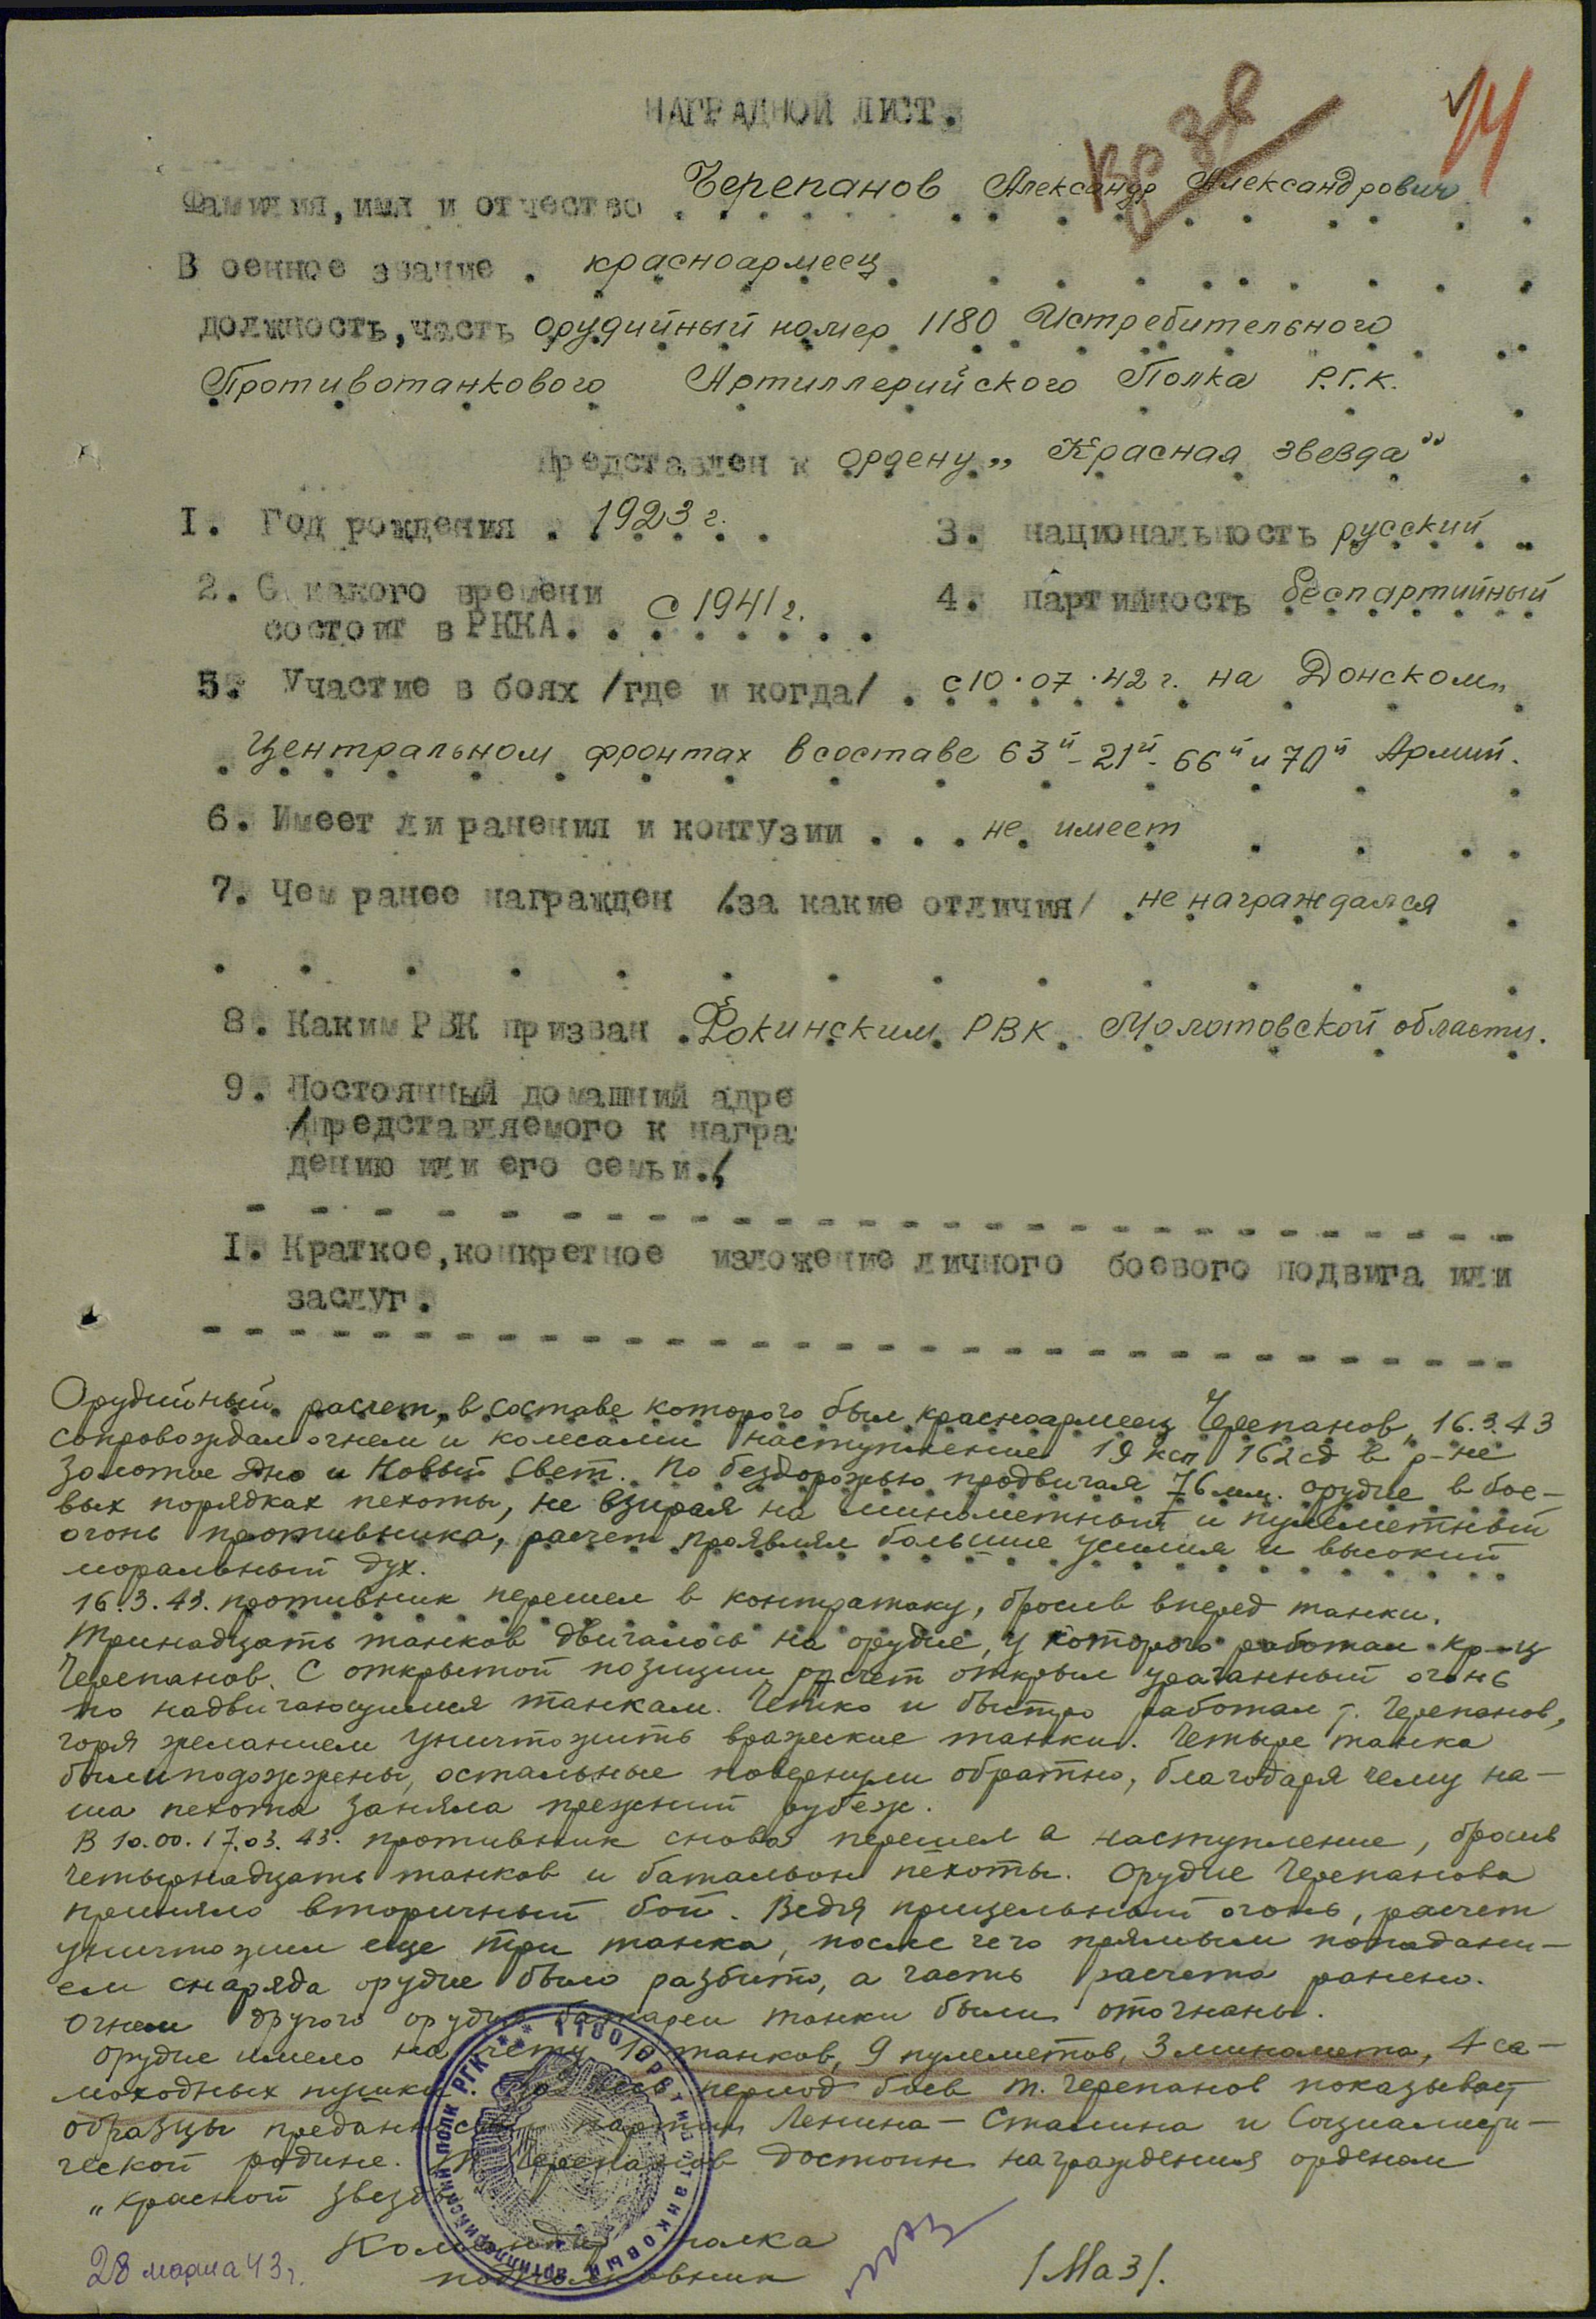 Кр Зв
14
НАГРАДНОЙ ЛИСТ.
Фамилия, имя и отчество . Черепанов Александр Александрович
Военное звание . красноармеец
должность, часть орудийный номер 1180 Истребительного
Противотанкового Артиллерийского Полка Р.Г.К.
Представлен к ордену „Красная звезда"
I. Год рождения . 1923 г. 3. национальность русский
2. С какого времени состоит в РККА. с 1941 г. 4. партийность беспартийный
5. Участие в боях /где и когда/ . с 10.07.42 г. на Донском,
Центральном фронтах в составе 63й - 21й - 66й и 70й Армий.
6. Имеет ли ранения и контузии . . . не имеет
7. Чем ранее награжден /за какие отличия/ не награждался
8. Каким РВК призван . Фокинским РВК Молотовской области.
9. Постоянный домашний адре
/представляемого к награ
дению или его семьи./
I. Краткое, конкретное изложение личного боевого подвига или
заслуг.
Орудийный расчет, в составе которого был красноармеец Черепанов, 16.3.43
сопровождал огнем и колесами наступление 19 ксп 162 сд в р-не
Золотое Дно и Новый Свет. По бездорожью продвигая 76 мм. орудие в бое-
вых порядках пехоты, не взирая на минометный и пулеметный
огонь противника, расчет проявлял большие усилия и высокий
моральный дух.
16.3.43. противник перешел в контратаку, бросив вперед танки.
Тринадцать танков двигалось на орудие, у которого работал кр-ц
Черепанов. С открытой позиции расчет открыл ураганный огонь
по надвигающимся танкам. Четко и быстро работал т. Черепанов,
горя желанием уничтожить вражеские танки. Четыре танка
были подожжены, остальные повернули обратно, благодаря чему на-
ша пехота заняла прежний рубеж.
В 10.00. 17.03.43. противник снова перешел в наступление, бросив
четырнадцать танков и батальон пехоты. Орудие Черепанова
приняло вторичный бой. Ведя прицельный огонь, расчет
уничтожил еще три танка, после чего прямым попадани-
ем снаряда орудие было разбито, а часть расчета ранено.
Огнем другого орудия батареи танки были отогнаны.
Орудие имело на счету 10 танков, 9 пулеметов, 3 миномета, 4 са-
моходных пушки. За весь период боев т. Черепанов показывает
образцы преданности партии Ленина - Сталина и Социалисти-
ческой родине. Т. Черепанов достоин награждения орденом
„Красной звезды"
Командир полка
подполковник /Маз/.
28 марта 43 г.